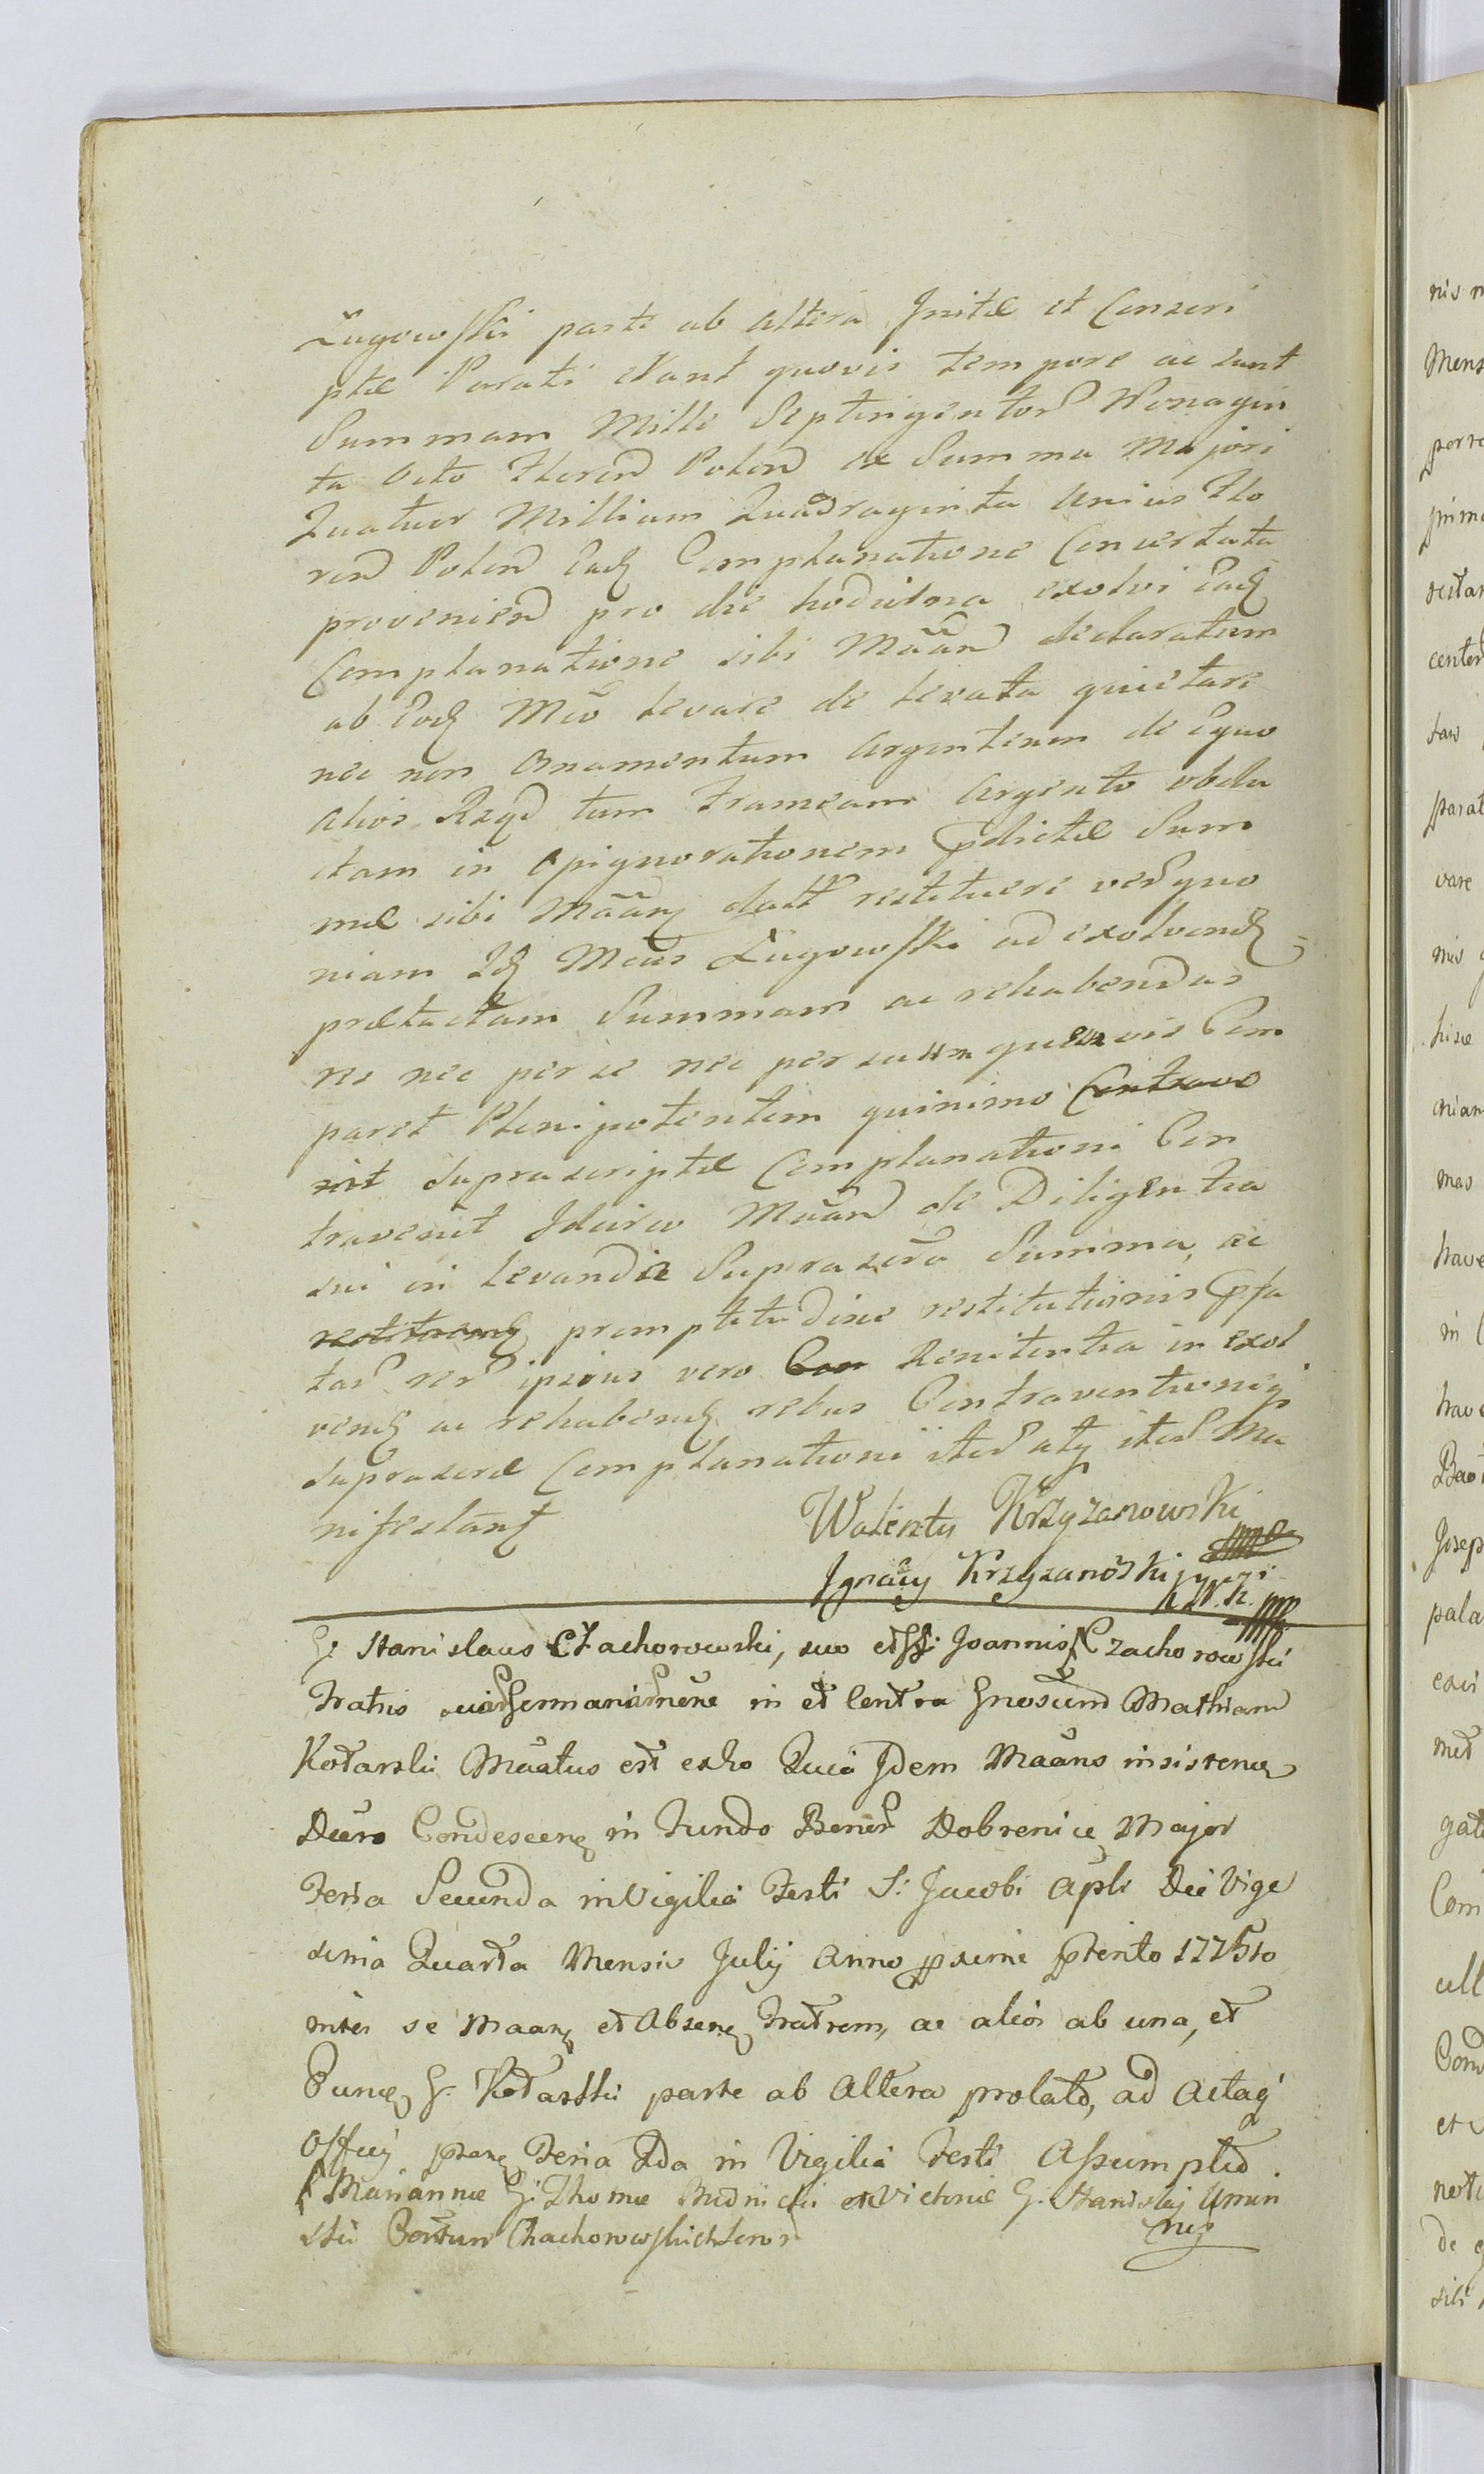 Ługowski parte ab altera Initæ et Conscri
ptæ Parati erant quovis tempore ac sunt
Summam Mille Septingentor Nonagin
ta Octo Floren Polon ex Summa Majori
Quatuor Millium Quadraginta Unius Flo
ren Polon Ead Complanatione Concertata
provenien pro die hodierna exolvi Ead
Complanatione sibi Mãan declaratum
ab Eod Mco levare de levata quietare
nec non Ornamentum Argenteum de Equo
alias Rząd tum Frameam Argento obdu
ctam in Opignorationem pdictæ Sum
mæ sibi Mãan datt restituere ver quo
niam Id Mcus Ługowski ad exolvend
prætactam Summam ac rehabendas
res nec per se nec per suum quemvis Com
paret Plenipotentem quinimo Contrave
nit Suprascriptæ Complanationi Con
travenit Idcirco Mãan de Diligentia
sui in levanda Suprascra Summa, ac
promptitudine restitutionis pfa
tar rer ipsius vero Con Renitentia in exol
vend ac rehabend rebus Contraventioneq
Suprascræ Complanationi iter atq iter Ma
nifestant
Walenty Krzyzanowski
Ignacy Krzyzanowski
G. Stanislaus Czachorowski, suo et G. Joannis Czachorowski
Fratris sui Germani nõne in et Contra Gnosum Mathiam
Kotarski Mãatus est exho Quia Idem Maãns insistend
Decro Condescen in Fundo Bonor Dobrenice Major
Feria Secunda in Vigilia Festi S: Jacobi Apli Die Vige
sima Quarta Mensis Julij Anno pxime ptento 1775to
inter se Maan et Absen Fratrem, ac alios ab una, et
G. Kotarski parte ab Altera prolato, ad Actaq
Officij psen Feria 2da in Vigilia Festi Assumptio
Mariannæ G. Thomæ Budnicki et Victoriæ G. Stanislaj Umin
ski Consor Czachorowskich Soror
nis